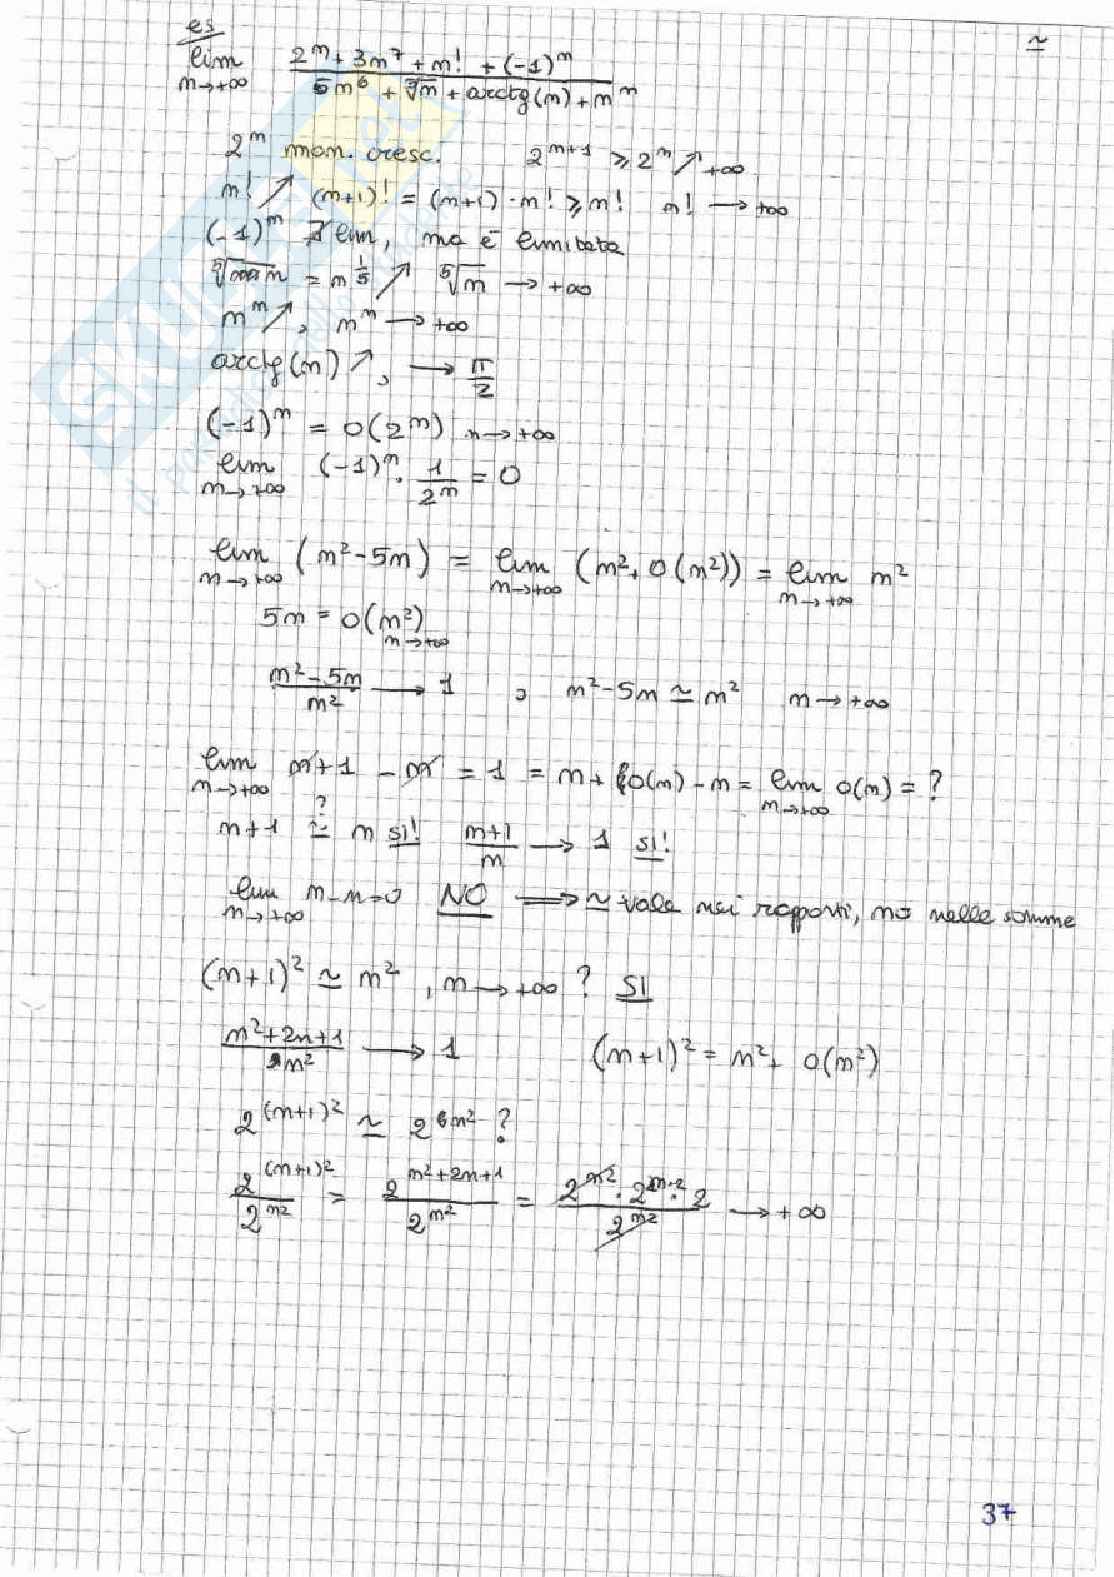 es
≃
lim n→+∞ (2^n + 3n^7 + n! + (-1)^n) / (5n^6 + ⁵√n + arctg(n) + n^n)
2^n mon. cresc. 2^(n+1) ⩾ 2^n ↗ +∞
n! ↗ (n+1)! = (n+1) · n! ⩾ n! n! → +∞
(-1)^n ∄ lim, ma è limitata
⁵√n = n^(1/5) ↗ ⁵√n → +∞
n^n ↗, n^n → +∞
arctg(n) ↗, → π/2
(-1)^n = o(2^n) n→+∞
lim n→+∞ (-1)^n · 1/2^n = 0
lim n→+∞ (n² - 5n) = lim n→+∞ (n² + o(n²)) = lim n→+∞ n²
5n = o(n²) n→+∞
(n² - 5n)/n² → 1 , n² - 5n ≃ n² n→+∞
lim n→+∞ n+1 - n = 1 = n + o(n) - n = lim n→+∞ o(n) = ?
n+1 ≃? n SI! (n+1)/n → 1 SI!
lim n→+∞ n-n=0 NO ⟹ ≃ vale nei rapporti, no nelle somme
(n+1)² ≃ n² , n→+∞ ? SI
(n²+2n+1)/n² → 1 (n+1)² = n² + o(n²)
2^(n+1)² ≃ 2^n² ?
2^(n+1)² / 2^n² = 2^(n²+2n+1) / 2^n² = (2^n² · 2^2n · 2) / 2^n² → +∞
37